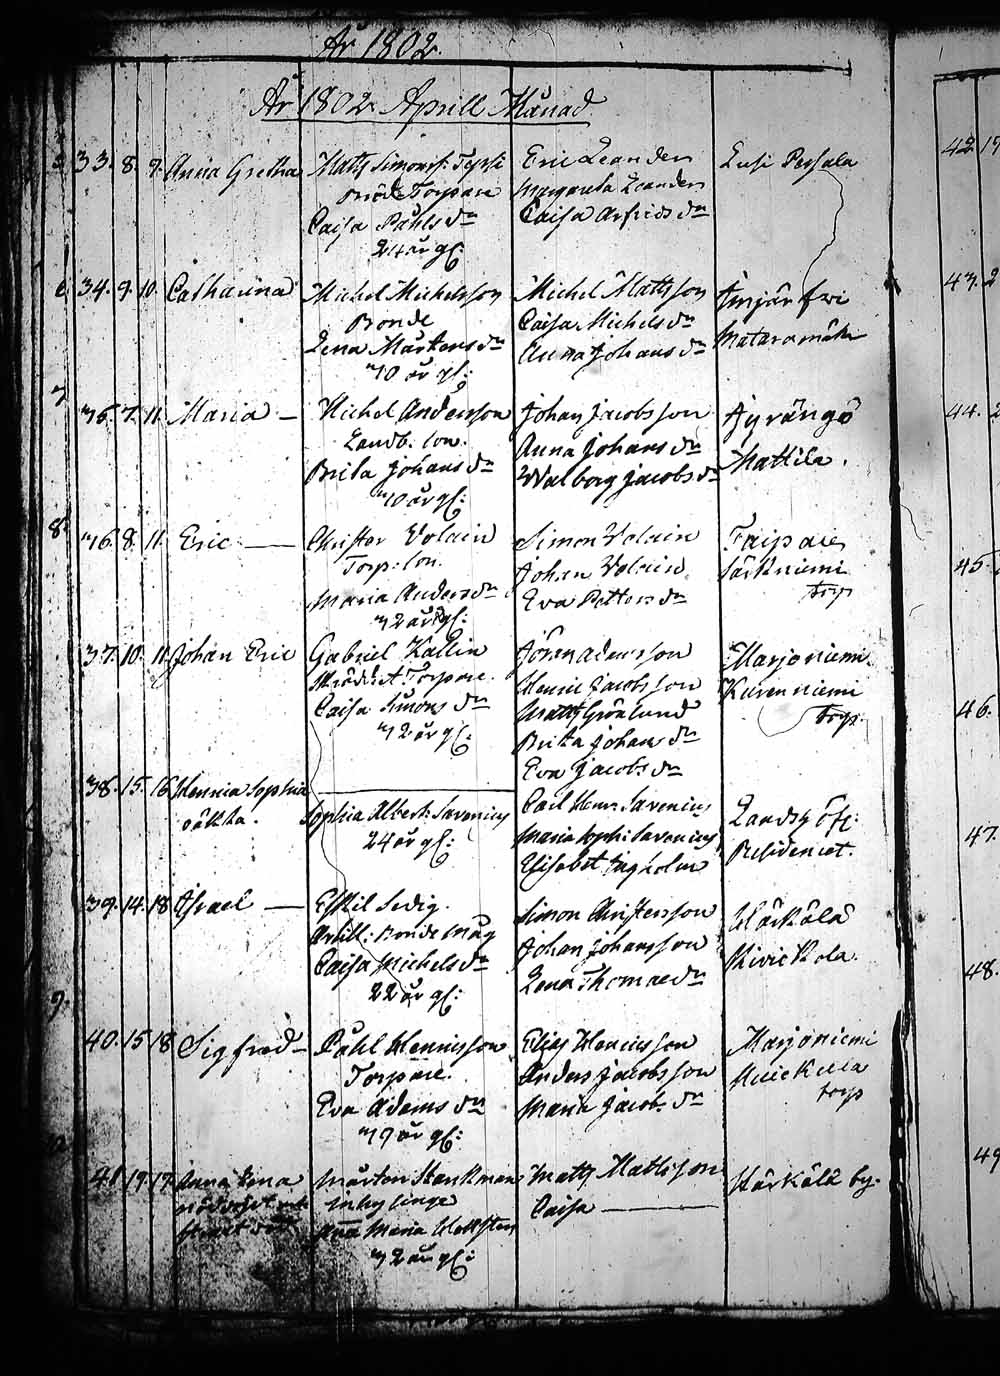 År 1802
År 1802 Aprill Månad
33. 8. 9. Anna Gretha
Matts Simonss:
Torpare
Caisa Påhls dr
24 år gl:
Eric Leander
Margareta Leander
Caisa Arfvids dr
Lusi Pessala
34. 9. 10. Catharina
Michel Michelsson
Bonde
Lena Mårtens dr
40 år gl:
Michel Mattsson
Caisa Michels dr
Anna Johans dr
Mataramäki
7
36. 7. 11 Maria
Michel Andersson
Landb. son.
Brita Johans dr
40 år gl:
Johan Jacobsson
Anna Johans dr
Walborg Jacobs dr
Äyrängö
Mattila.
8
36. 8. 11 Eric
Christer Volain
Torp: son.
Maria Anders dr
42 år gl:
Simon Volain
Johan Volain
Eva Petters dr
Faipaie
Särkniemi
torp
37. 10. 11. Johan Eric
Gabriel Kallin
Torpare.
Caisa Simons dr
42 år gl:
Jöran Adamsson
Henric Jacobsson
Matts Grönlund
Brita Johans dr
Eva Jacobs dr
Marjoniemi
Kurenniemi
torp.
38. 15. 16 Hennica Sophia
oäkta.
Sophia Albert: Savenius
24 år gl:
Carl Henr. Savenius
Maria Soph: Savenius
Elisabet
Landsh öf:
Residencet.
39. 14. 18 Israel
Eskil Sedig.
Artill: Bonde måg
Caisa Michels dr
22 år gl:
Simon Christersson
Johan Johansson
Lena Thomae dr
Härkälä
Kivickola.
9.
40. 15 18 Sigfred
Påhl Hennisson
Torpare.
Eva Adams dr
49 år gl:
Elias Henricsson
Anders Jacobsson
Maria Jacobs dr
Marjoniemi
torp
41 17. 17 Anna Lena
nöddöpt
Mårten Stenkman
Inhysinge
Anna Maria
42 år gl:
Matts Mattsson
Caisa
Härkälä by.
42 19
43. 2
44. 2
45.
46.
47.
48.
49